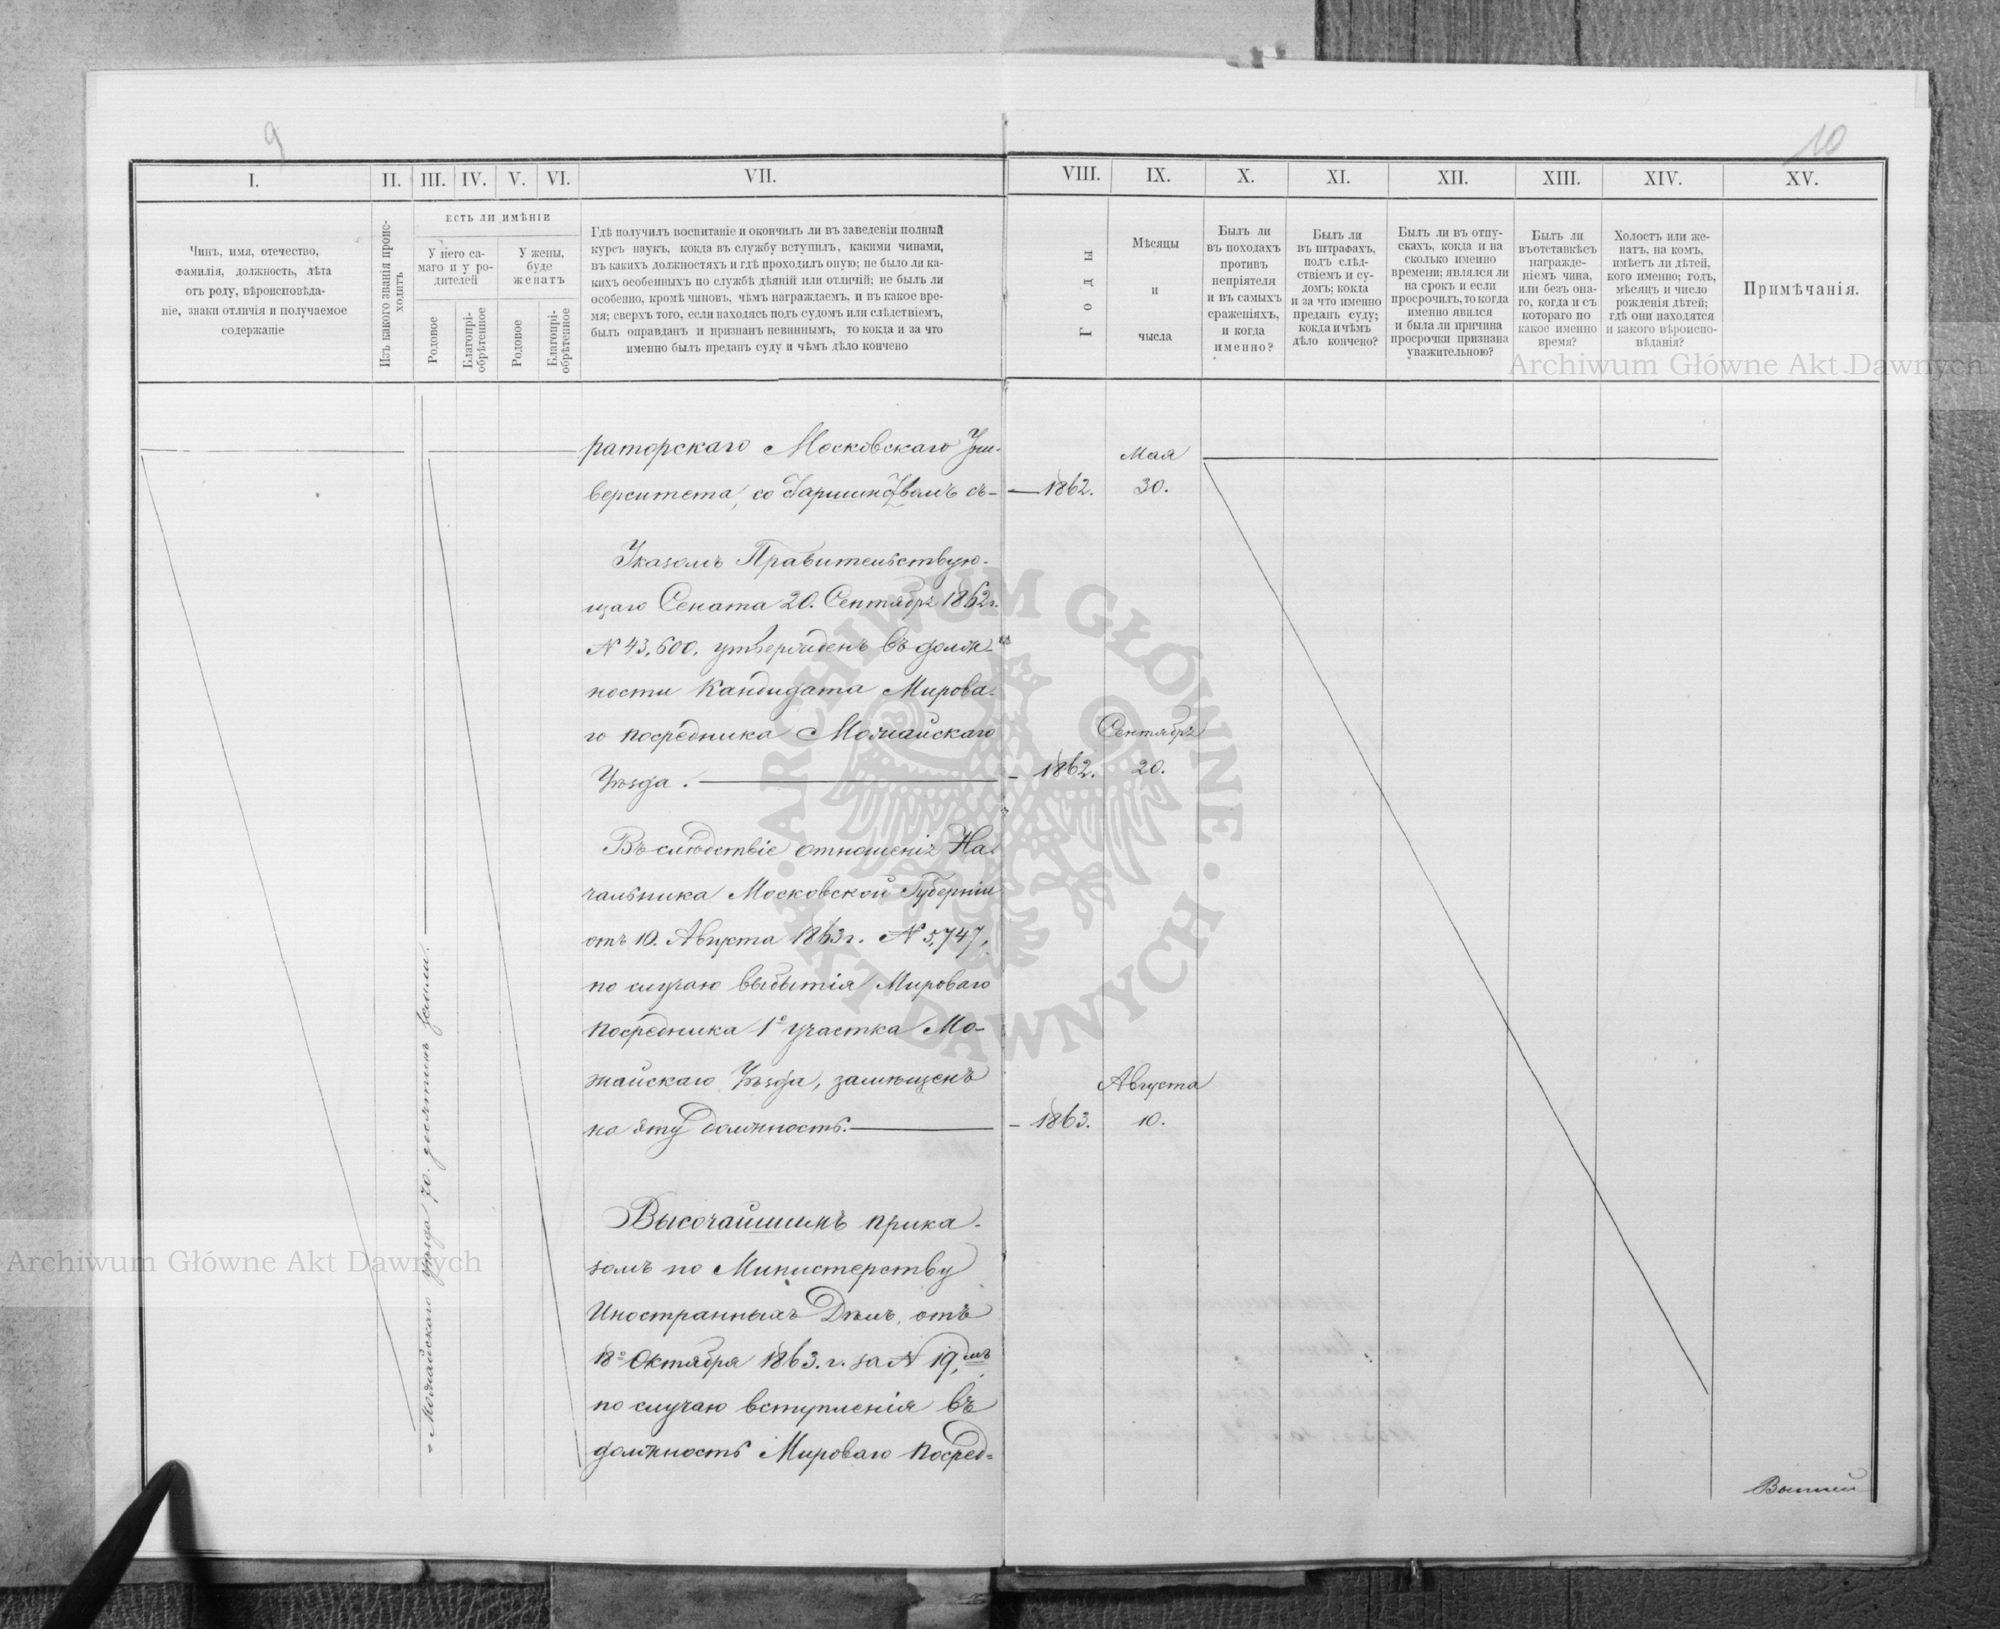 9
10
I.
II.
III.
IV.
V.
VI.
VII.
VIII.
IX.
X.
XI.
XII.
XIII.
XIV.
XV.
Чинъ, имя, отечество,
фамилія, должность, лѣта
отъ роду, вѣроисповѣда-
ніе, знаки отличія и получаемое
содержаніе
Изъ какого званія проис-
ходитъ
ЕСТЬ ЛИ ИМѢНІЕ
У него са-
маго и у ро-
дителей
У жены,
буде
женатъ
Родовое
Благопрі-
обрѣтенное
Родовое
Благопрі-
обрѣтенное
Гдѣ получилъ воспитаніе и окончилъ ли въ заведеніи полный
курсъ наукъ, когда въ службу вступилъ, какими чинами,
въ какихъ должностяхъ и гдѣ проходилъ оную; не было ли ка-
кихъ особенныхъ по службѣ дѣяній или отличій; не былъ ли
особенно, кромѣ чиновъ, чѣмъ награждаемъ, и въ какое вре-
мя; сверхъ того, если находясь подъ судомъ или слѣдствіемъ,
былъ оправданъ и признанъ невиннымъ, то когда и за что
именно былъ преданъ суду и чѣмъ дѣло кончено
Годы
Мѣсяцы
и
числа
Былъ ли
въ походахъ
противъ
непріятеля
и въ самыхъ
сраженіяхъ,
и когда
именно?
Былъ ли
въ штрафахъ,
подъ слѣд-
ствіемъ и су-
домъ; когда
и за что именно
преданъ суду;
когда и чѣмъ
дѣло кончено?
Былъ ли въ отпу-
скахъ, когда и на
сколько именно
времени; являлся ли
на срокъ и если
просрочилъ, то когда
именно явился
и была ли причина
просрочки признана
уважительною?
Былъ ли
въ отставкѣ съ
награжде-
ніемъ чина,
или безъ она-
го, когда и съ
котораго по
какое именно
время?
Холостъ или же-
натъ, на комъ,
имѣетъ ли дѣтей,
кого именно; годъ,
мѣсяцъ и число
рожденія дѣтей;
гдѣ они находятся
и какого вѣроиспо-
вѣданія?
Примѣчанія.
Можайскаго уѣзда 70. десятинъ земли.
раторскаго Московскаго Уни-
верситета, со съ- 1862. Мая 30.
Указомъ Правительствую-
щаго Сената 20. Сентября 1862 г.
N 43,600, утвержденъ въ долж-
ности Кандидата Мирова-
го посредника Можайскаго
Уѣзда. 1862. Сентября 20.
Въ слѣдствіе отношенія На-
чальника Московской Губерніи
отъ 10. Августа 1863 г. N 5,747,
по случаю выбытія Мироваго
посредника 1го участка Мо-
жайскаго Уѣзда, замѣщенъ
на эту должность. 1863. Августа 10.
Высочайшимъ прика-
зомъ по Министерству
Иностранныхъ Дѣлъ, отъ
18го Октября 1863. г. за N 19,мъ
по случаю вступленія въ
должность Мироваго посред-
Archiwum Główne Akt Dawnych
Archiwum Główne Akt Dawnych
ARCHIWUM GŁÓWNE · AKT DAWNYCH ·